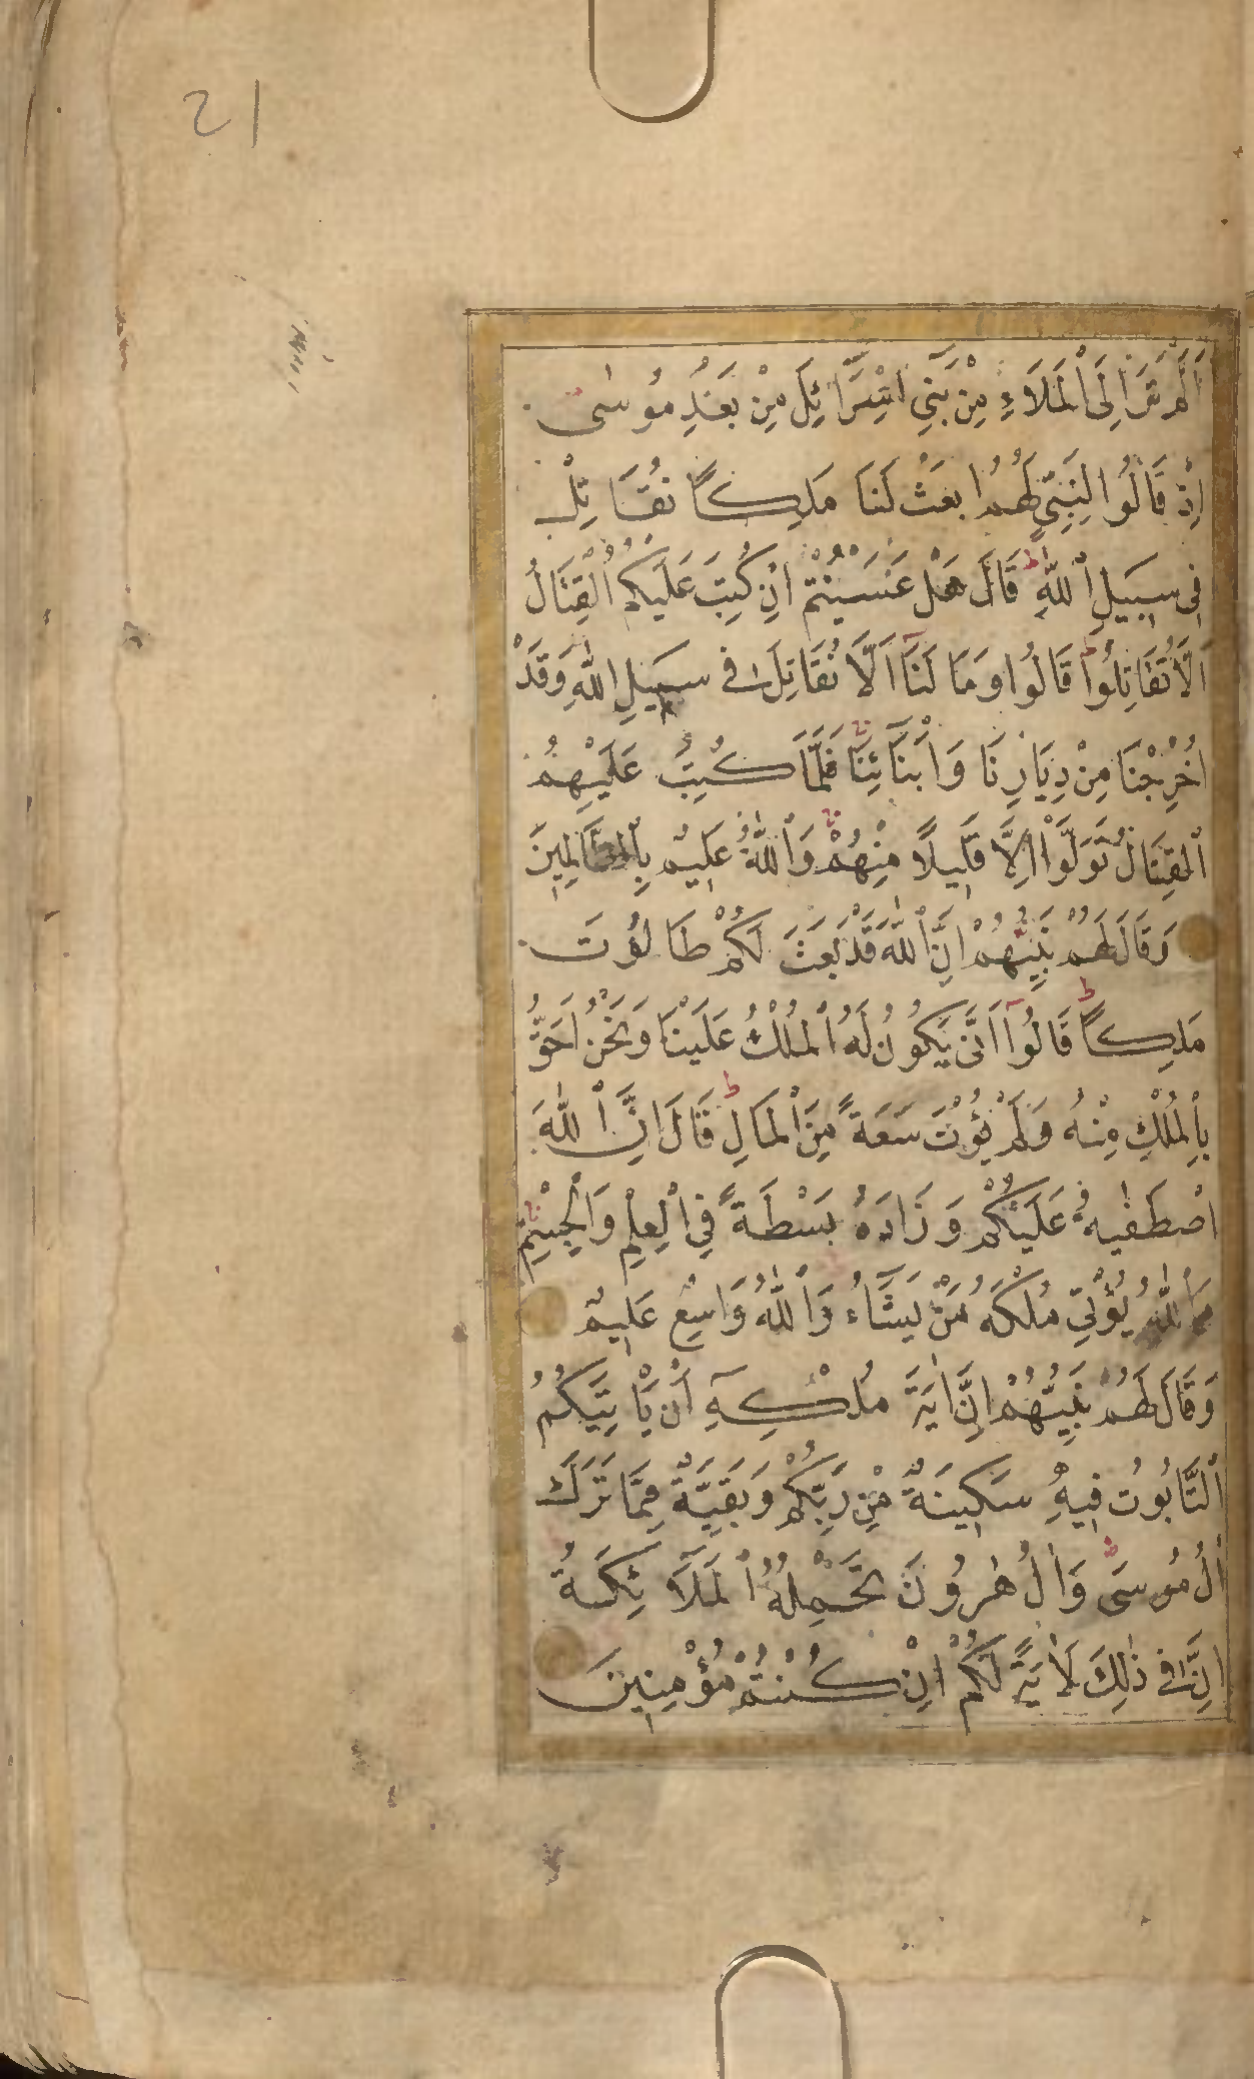 21
اَلَمْ تَرَ اِلَى ٱلْمَلَاءِ مِنْ بَنِي اِسْرَائِلَ مِنْ بَعْدِ مُوسٰى
اِذْ قَالُوا لِنَبِيٍّ لَهُمُ ابْعَثْ لَنَا مَلِكًا نُقَاتِلْ
فِي سَبِيلِ ٱللّٰهِ ط قَالَ هَلْ عَسَيْتُمْ اِنْ كُتِبَ عَلَيْكُمُ الْقِتَالُ
اَلَّا تُقَاتِلُوا ط قَالُوا وَمَا لَنَا اَلَّا نُقَاتِلَ فِي سَبِيلِ اللّٰهِ وَقَدْ
اُخْرِجْنَا مِنْ دِيَارِنَا وَاَبْنَائِنَا فَلَمَّا كُتِبَ عَلَيْهِمُ
ٱلْقِتَالُ تَوَلَّوْا اِلَّا قَلِيلًا مِنْهُمْ وَٱللّٰهُ عَلِيمٌ بِٱلظَّالِمِينَ
وَقَالَ لَهُمْ نَبِيُّهُمْ اِنَّ ٱللّٰهَ قَدْ بَعَثَ لَكُمْ طَالُوتَ
مَلِكًا ط قَالُوٓا اَنَّى يَكُونُ لَهُ ٱلْمُلْكُ عَلَيْنَا وَنَحْنُ اَحَقُّ
بِٱلْمُلْكِ مِنْهُ وَلَمْ يُؤْتَ سَعَةً مِنَ ٱلْمَالِ ط قَالَ اِنَّ ٱللّٰهَ
اصْطَفٰيهُ عَلَيْكُمْ وَزَادَهُ بَسْطَةً فِي الْعِلْمِ وَالْجِسْمِ
وَٱللّٰهُ يُؤْتِي مُلْكَهُ مَنْ يَشَاءُ وَٱللّٰهُ وَاسِعٌ عَلِيمٌ
وَقَالَ لَهُمْ نَبِيُّهُمْ اِنَّ اٰيَةَ مُلْكِهِ اَنْ يَاْتِيَكُمُ
ٱلتَّابُوتُ فِيهِ سَكِينَةٌ مِنْ رَبِّكُمْ وَبَقِيَّةٌ مِمَّا تَرَكَ
اٰلُ مُوسَى وَاٰلُ هٰرُونَ تَحْمِلُهُ ٱلْمَلَائِكَةُ ط
اِنَّ فِي ذٰلِكَ لَاٰيَةً لَكُمْ اِنْ كُنْتُمْ مُؤْمِنِينَ